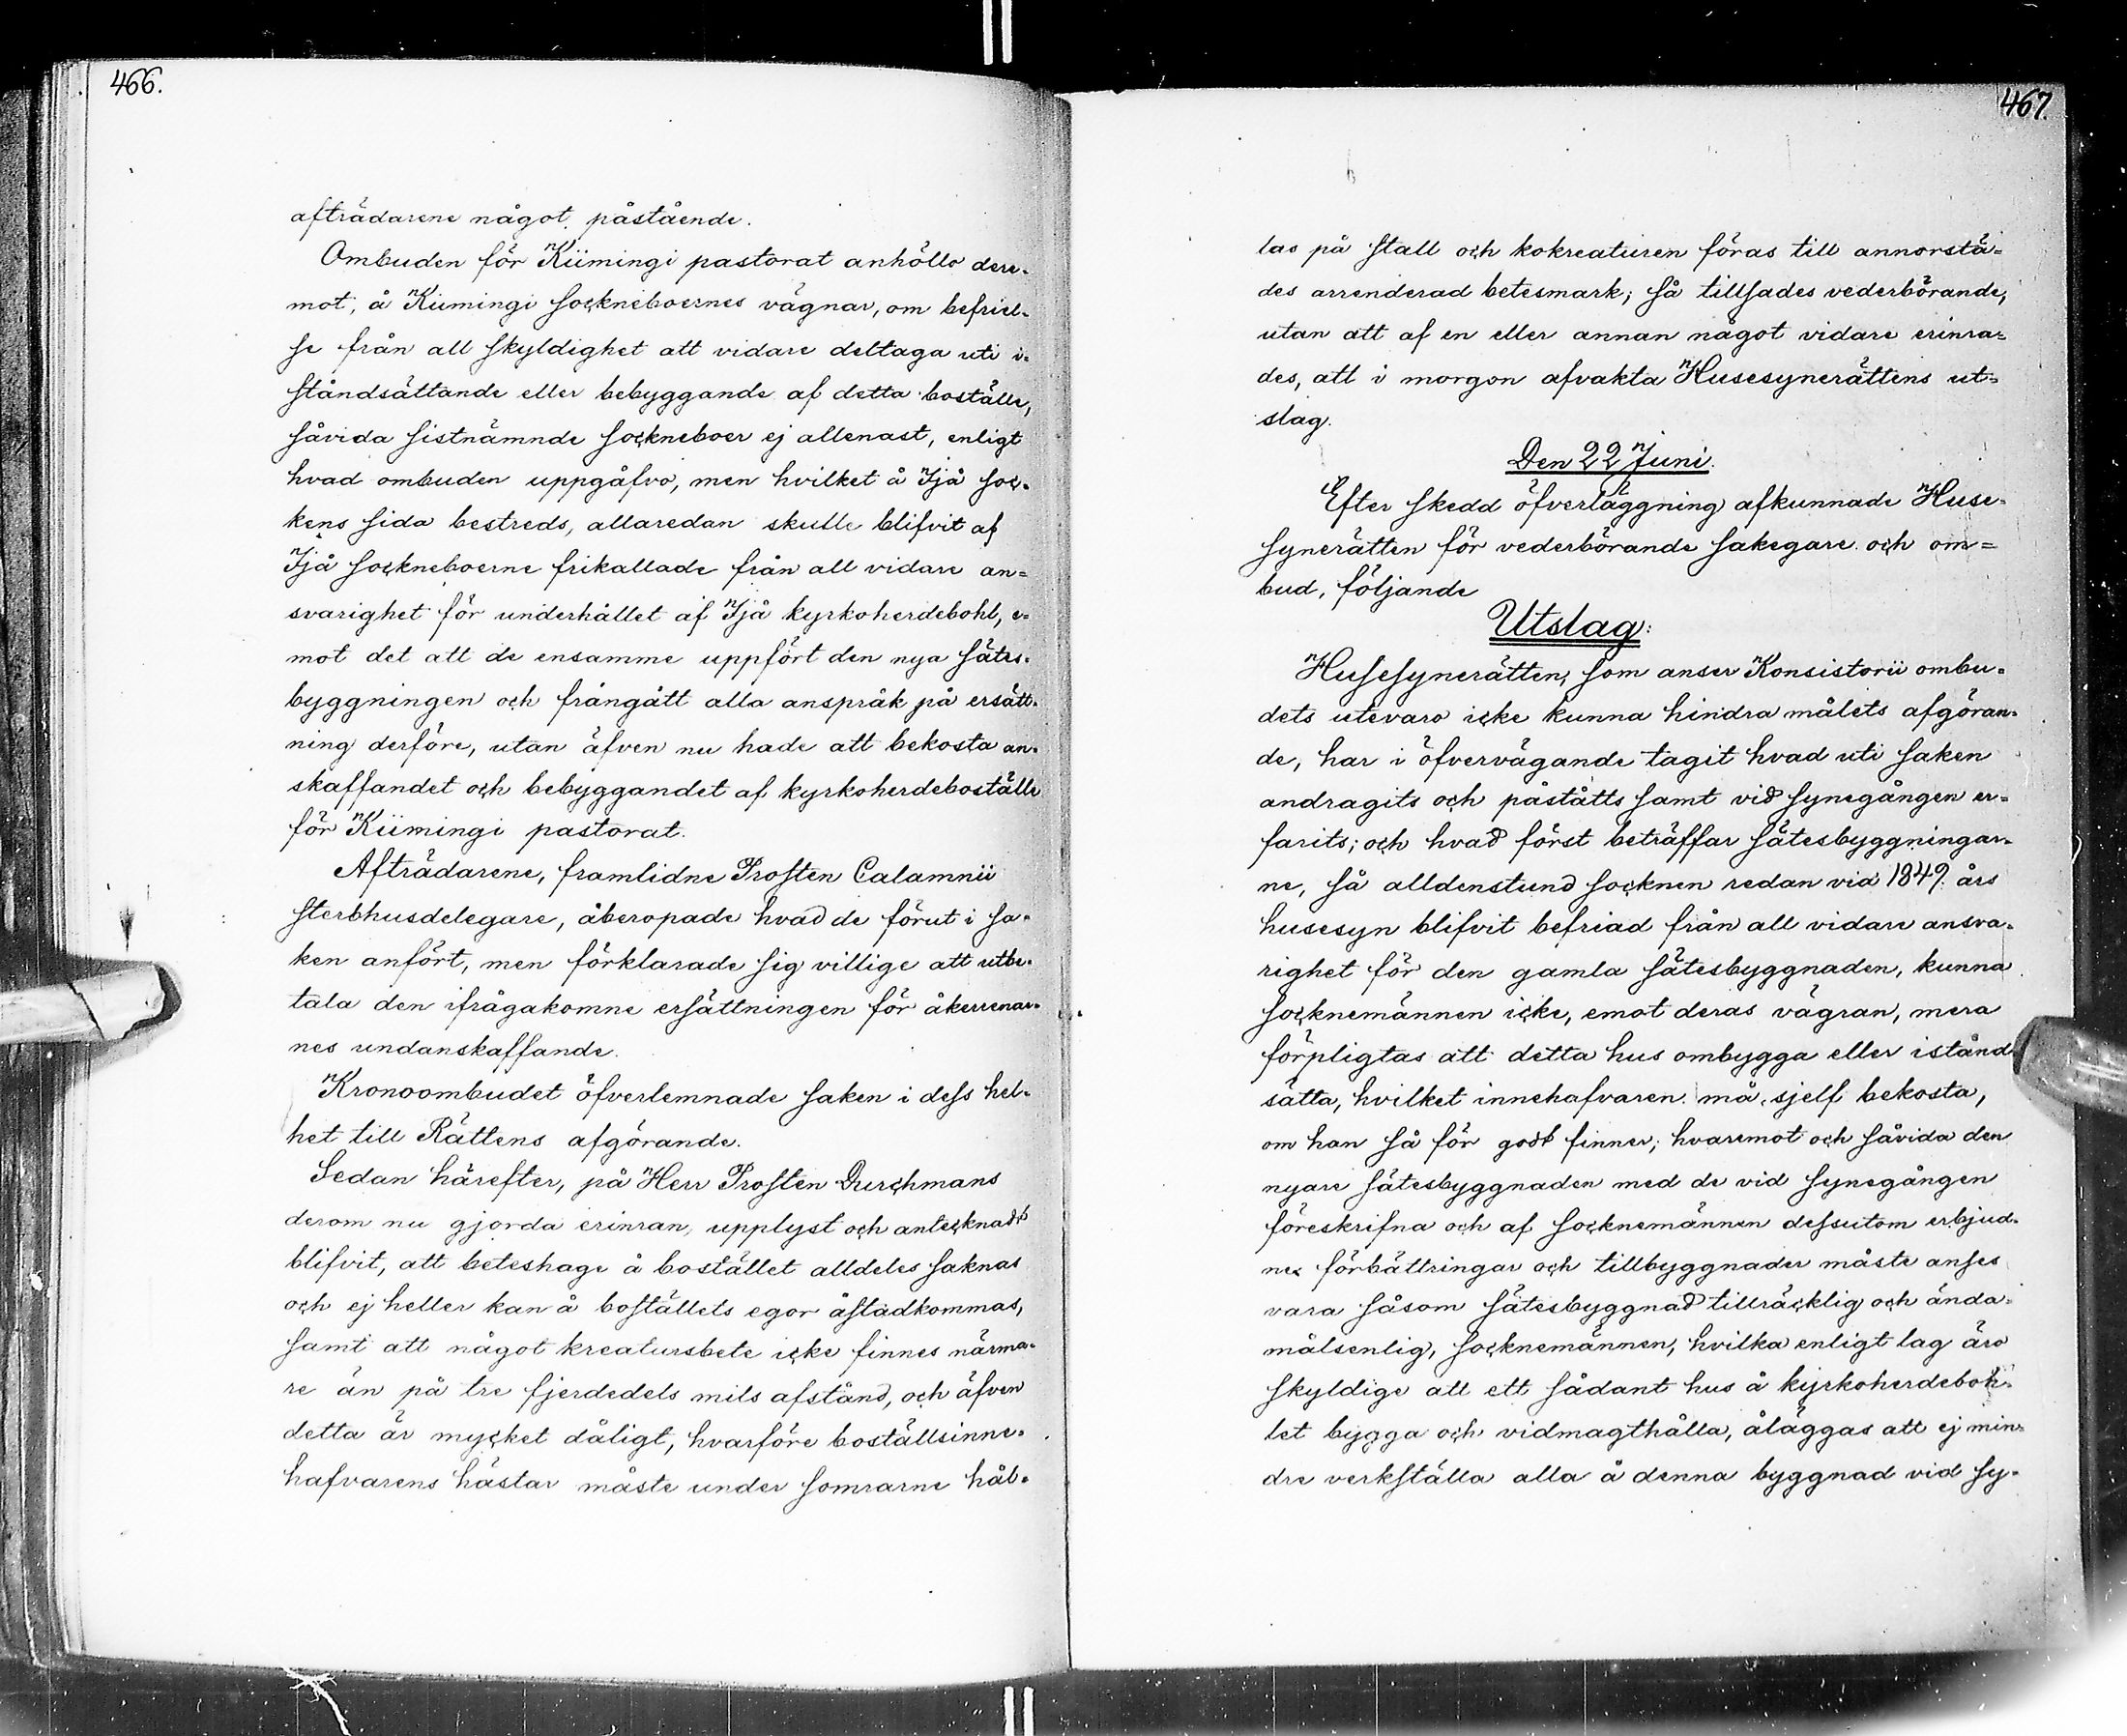 466.
afträdarene något påstående.
Ombuden för Kiimingi pastorat anhöllo dere-
mot, å Kiimingi sockneboernes vägnar, om befriel-
se från all skyldighet att vidare deltaga uti i-
ståndsättande eller bebyggande af detta boställe,
såvida sistnämnde sockneboer ej allenast, enligt
hvad ombuden uppgåfvo, men hvilket å Ijå soc-
kens sida bestreds, allaredan skulle blifvit af
Ijå sockneboerne frikallade från all vidare an-
svarighet för underhållet af Ijå kyrkoherdebohl, e-
mot det att de ensamme uppfört den nya sätes-
byggningen och frångått alla anspråk på ersätt-
ning derföre, utan äfven nu hade att bekosta an-
skaffandet och bebyggandet af kyrkoherdeboställe
för Kiimingi pastorat.
Afträdarene, framlidne Prosten Calamnii
sterbhusdelegare, åberopade hvad de förut i sa-
ken anfört, men förklarade sig villige att utbe-
tala den ifrågakomne ersättningen för åkerrenar-
nes undanskaffande.
Kronoombudet öfverlemnade saken i dess hel-
het till Rättens afgörande.
Sedan härefter, på Herr Prosten Durchmans
derom nu gjorda erinran, upplyst och antecknadt
blifvit, att beteshage å bostället alldeles saknas
och ej heller kan å boställets egor åstadkommas,
samt att något kreatursbete icke finnes närma-
re än på tre fjerdedels mils afstånd, och äfven
detta är mycket dåligt, hvarföre boställsinne-
hafvarens hästar måste under somrarne hål-
467.
las på stall och kokreaturen föras till annorstä-
des arrenderad betesmark; så tillsades vederbörande,
utan att af en eller annan något vidare erinra-
des, att i morgon afvakta Husesynerättens ut-
slag.
Den 22 Juni.
Efter skedd öfverläggning afkunnade Huse-
synerätten för vederbörande sakegare och om-
bud, följande
Utslag:
Husesynerätten, som anser Konsistorii ombu-
dets utevaro icke kunna hindra målets afgöran-
de, har i öfvervägande tagit hvad uti saken
andragits och påståtts samt vid synegången er-
farits; och hvad först beträffar sätesbyggningar-
ne, så alldenstund socknen redan vid 1849 års
husesyn blifvit befriad från all vidare ansva-
righet för den gamla sätesbyggnaden, kunna
socknemännen icke, emot deras vägran, mera
förpligtas att detta hus ombygga eller istånd-
sätta, hvilket innehafvaren må sjelf bekosta,
om han så för godt finner; hvaremot och såvida den
nyare sätesbyggnaden med de vid synegången
föreskrifna och af socknemännen dessutom erbjud-
ne förbättringar och tillbyggnader måste anses
vara såsom sätesbyggnad tillräcklig och ända-
målsenlig, socknemännen, hvilka enligt lag äro
skyldige att ett sådant hus å kyrkoherdeboh-
let bygga och vidmagthålla, åläggas att ej min-
dre verkställa alla å denna byggnad vid sy-